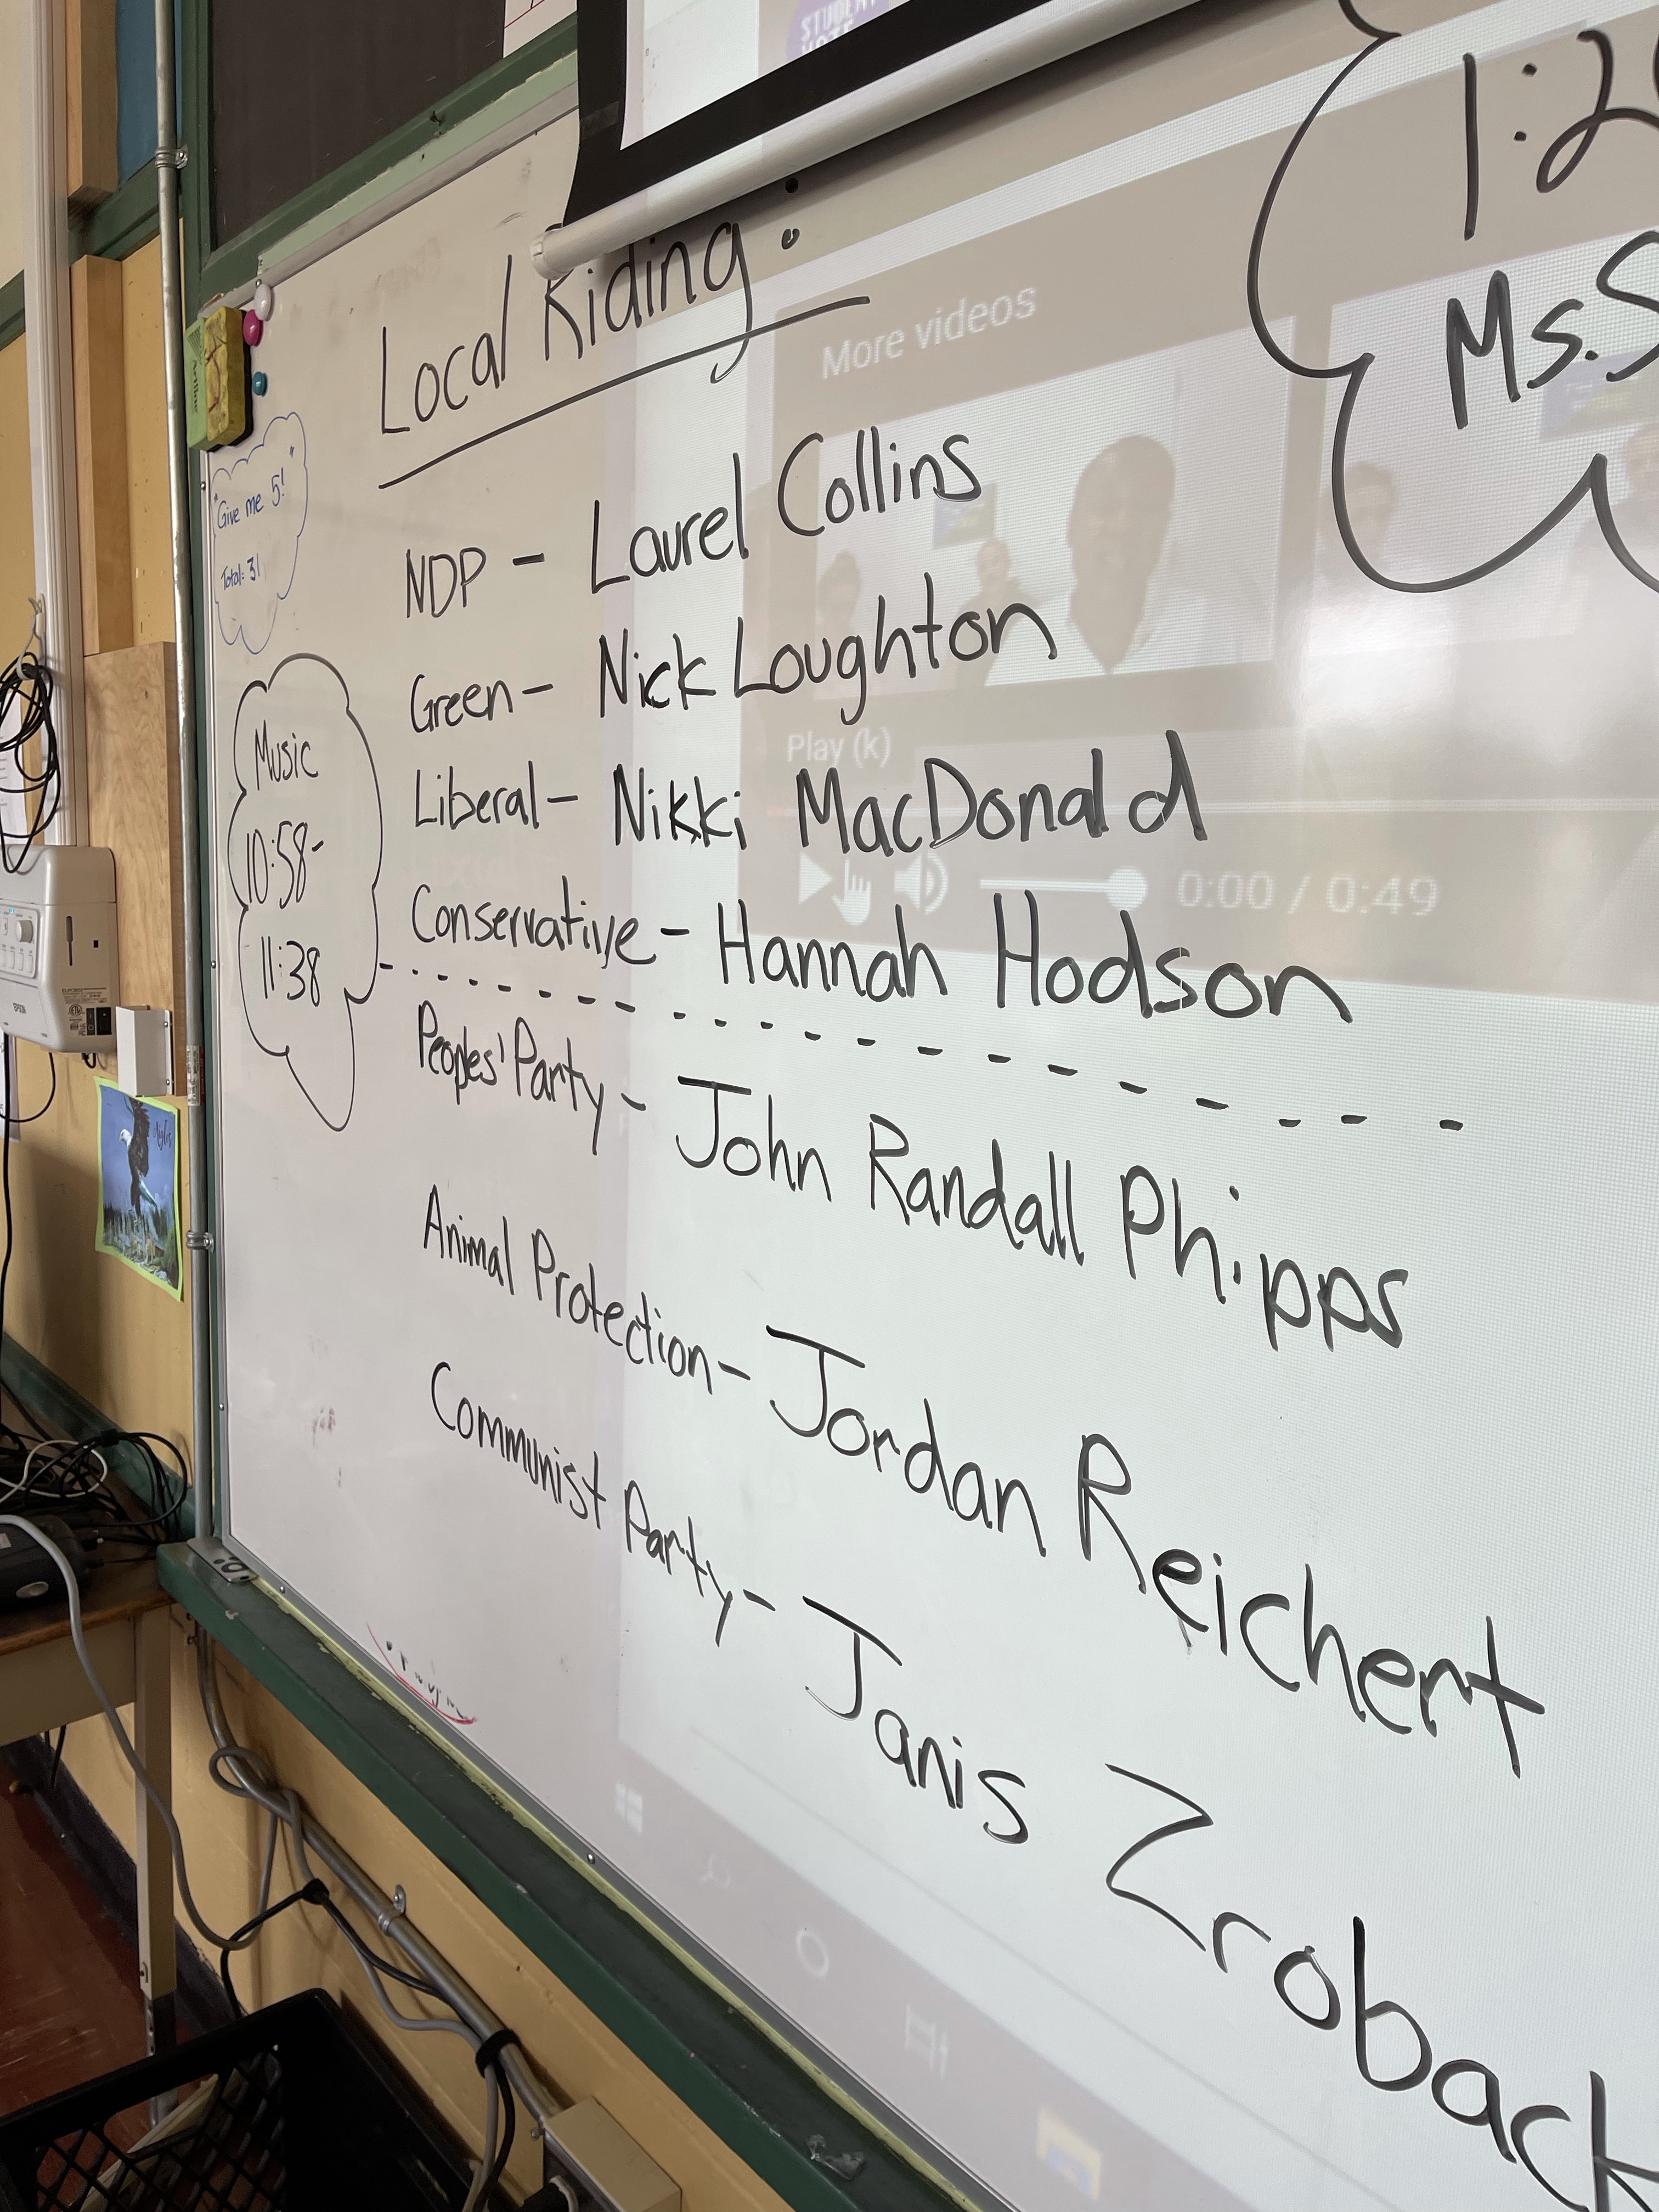 STUDENT
VOTE
Local Riding:
More videos
"Give me 5!"
Total: 31
NDP - Laurel Collins
Green - Nick Loughton
Play (k)
Liberal - Nikki MacDonald
0:00 / 0:49
Conservative - Hannah Hodson
Peoples' Party - John Randall Phipps
Animal Protection - Jordan Reichert
Communist Party - Janis Zroback
Music
10:58-
11:38
EPSON